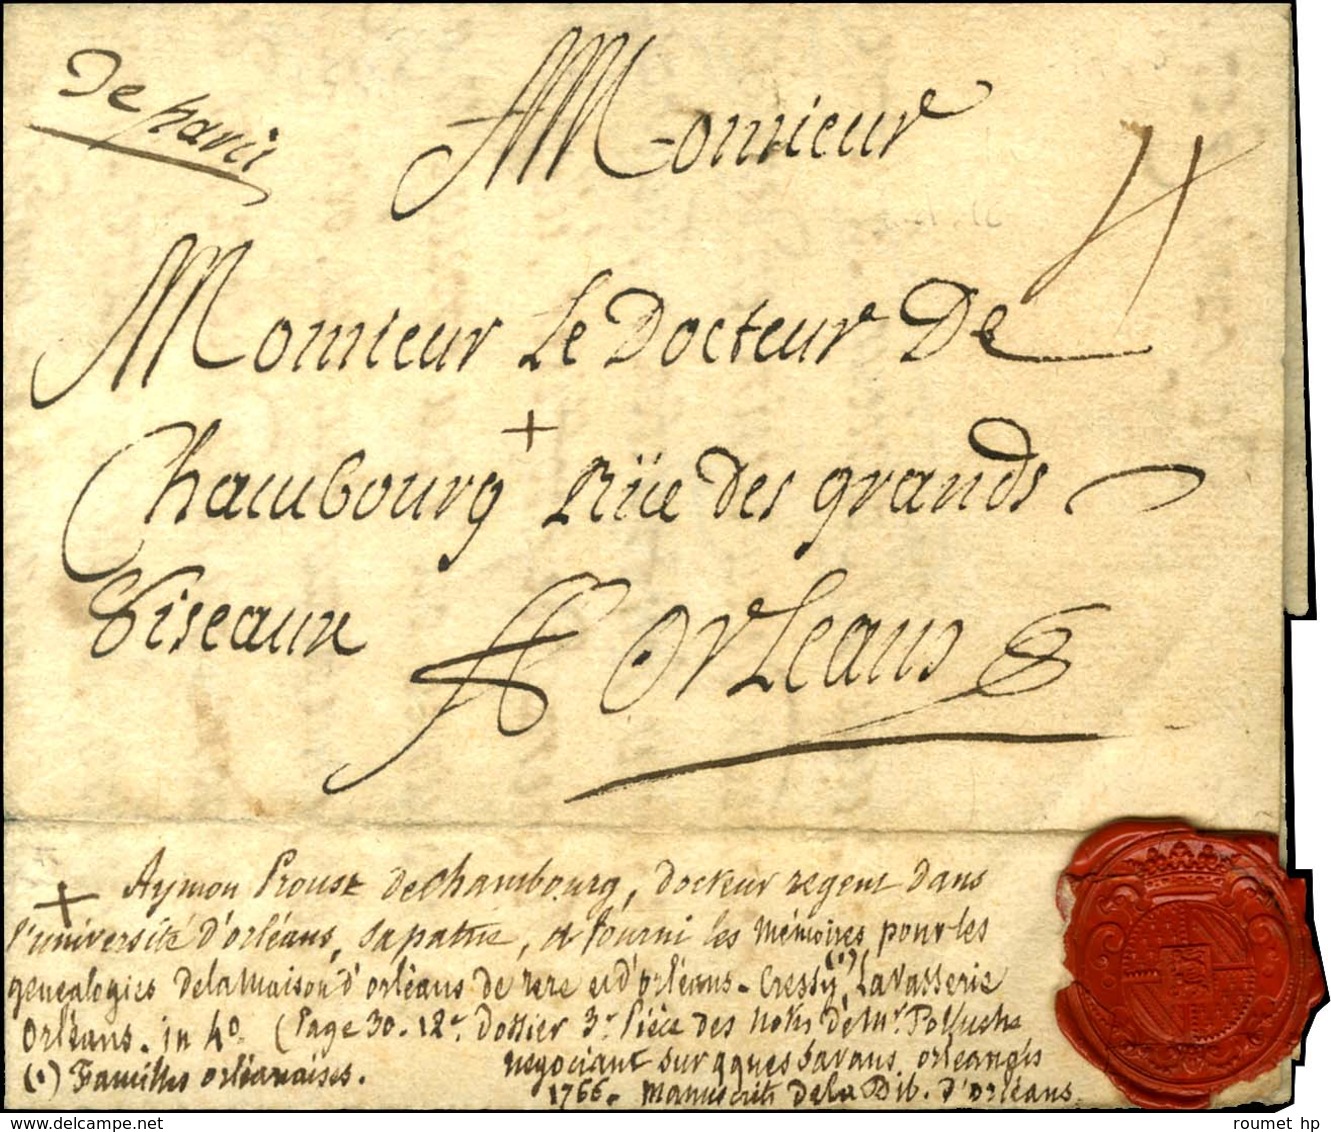 De paris
Monsieur
4
Monsieur Le Docteur De
+
Chambourg Rüe des grands
Oiseaux A Orleans
+ Aymon Proust de Chambourg, docteur regent dans
l'université d'orléans, sa patrie, a fourni les Mémoires pour les
genealogies de la Maison d'orléans de rere et d'orléans-Cressy (1), La Vasserie
Orléans. in 4° (Page 30. 12e Dossier 3e Pièce des Notes de Mr. Polluche
negociant sur qques savans orléanais
(1) Familles orléanaises.
1766. Manuscrits de la Bib. d'orléans.
roumet hp
delcampe.net